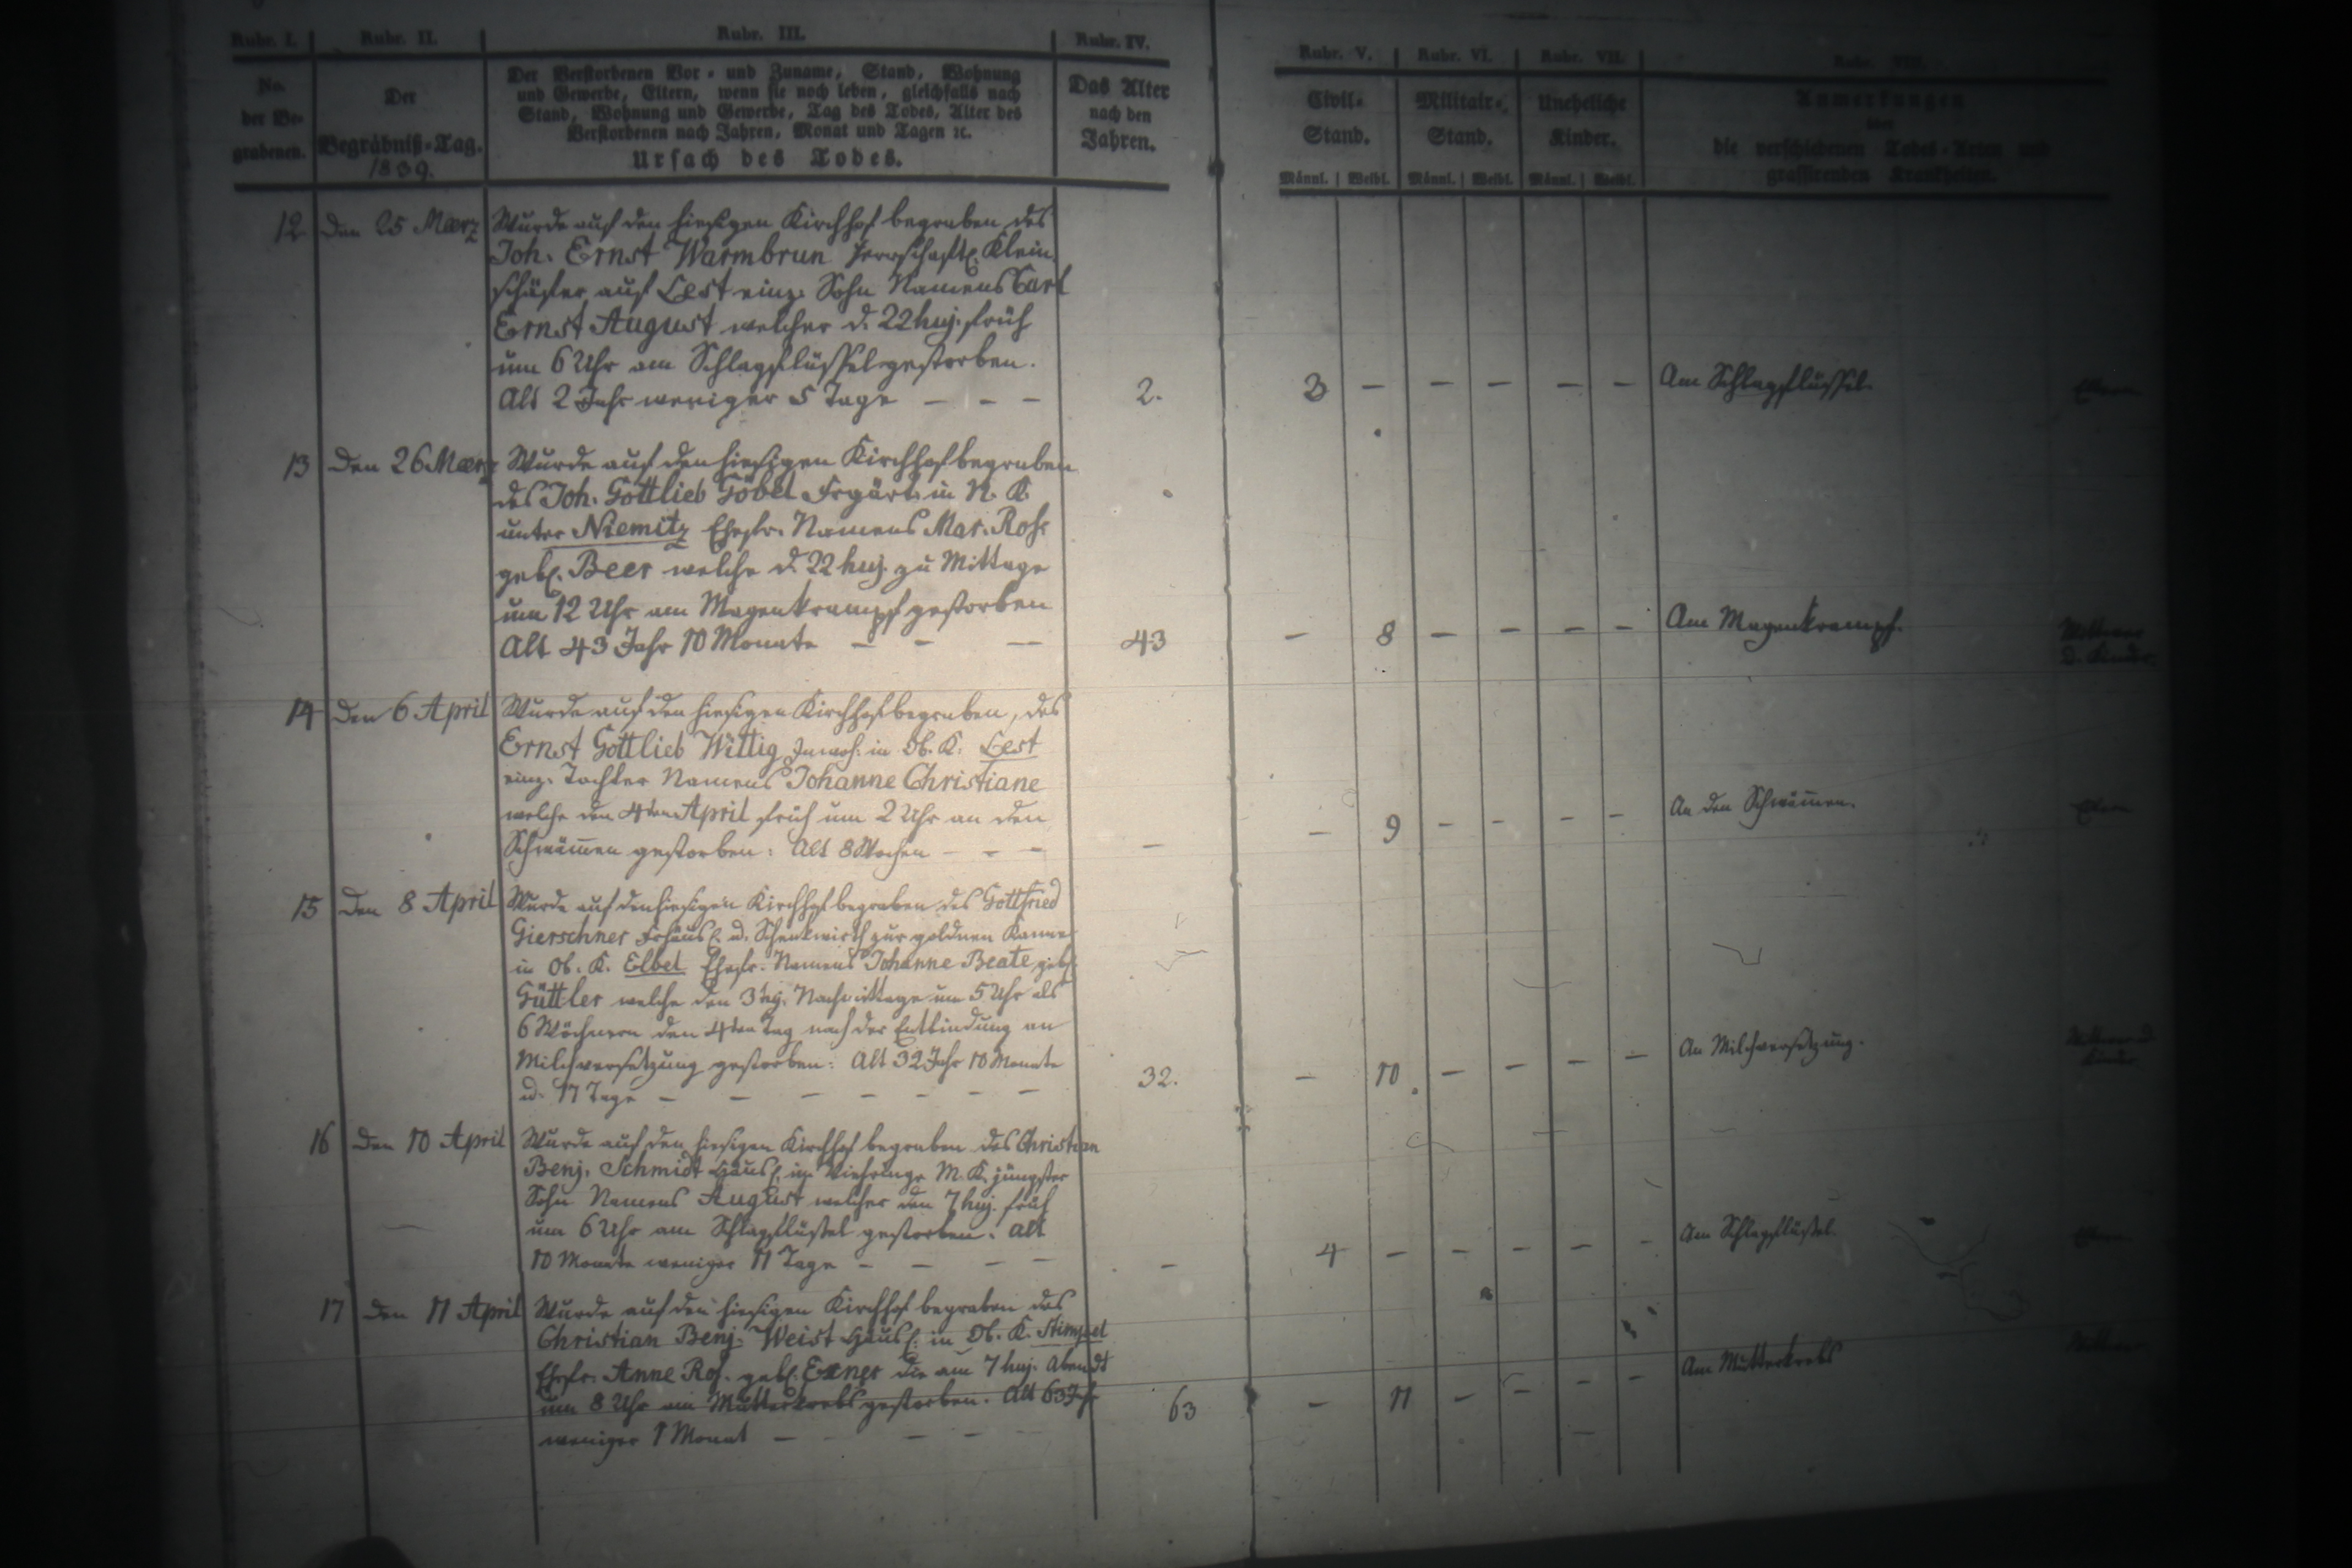 Rubr. I. Rubr. II. Rubr. III. Rubr. IV. Rubr. V. Rubr. VI. Rubr. VII. Rubr. VIII.
No. der Be-grabenen.
Der Begräbniß-Tag.
1839.
Der Verstorbenen Vor- und Zuname, Stand, Wohnung
und Gewerbe, Eltern, wenn sie noch leben, gleichfalls nach
Stand, Wohnung und Gewerbe, Tag des Todes, Alter des
Verstorbenen nach Jahren, Monat und Tagen ꝛc.
Ursach des Todes.
Das Alter
nach den
Jahren.
Civil-
Stand.
Militair-
Stand.
Uneheliche
Kinder.
Männl. Weibl. Männl. Weibl. Männl. Weibl.
Anmerkungen
über
die verschiedenen Todes-Arten und
grassirenden Krankheiten.
12 Den 25 Maerz Wurde auf den hiesigen Kirchhof begraben des
Joh. Ernst Warmbrun herrschaftl. Klein-
schäfer auf Lest einz. Sohn Namens Carl
Ernst August welcher d. 22 huj. früh
um 6 Uhr am Schlagflüssel gestorben.
Alt 2 Jahr weniger 5 Tage – – – 2. 3 – – – – – Am Schlagflüssel. Eltern
13 Den 26 Maerz Wurde auf den hiesigen Kirchhof begraben
des Joh. Gottlieb Göbel Frgärt. in N. K.
unter Niemitz Ehefr. Namens Mar. Ros.
gebl. Beer welche d. 22 huj. zu Mittage
um 12 Uhr am Magenkrampf gestorben
Alt 43 Jahr 10 Monate – – – 43 – 8 – – – – Am Magenkrampf. Wittwer
u. Kinder.
14 Den 6 April Wurde auf den hiesigen Kirchhof begraben, des
Ernst Gottlieb Wittig Inwoh. in Ob. K. Lest
einz. Tochter Namens Johanne Christiane
welche den 4ten April früh um 2 Uhr an den
Schwämen gestorben: Alt 8 Wochen – – – – – 9 – – – – An den Schwämen. Eltern
15 Den 8 April Wurde auf den hiesigen Kirchhof begraben des Gottfried
Gierschner Frhäusl. u. Schenkwirth zur goldnen Kanne
in Ob. K. Elbel Ehefr. Namens Johanne Beate gebl.
Güttler welche den 3 hj. Nachmittage um 5 Uhr als
6 Wöchnern den 4ten Tag nach der Entbindung an
Milchversetzung gestorben: Alt 32 Jahr 10 Monate
u. 17 Tage – – – – – – – 32. – 10 – – – – An Milchversetzung. Wittwer u.
Kinder
16 Den 10 April Wurde auf den hiesigen Kirchhof begraben des Christian
Benj. Schmidt Häusl. im Viehringe M. K. jüngster
Sohn Namens August welcher den 7 huj. früh
um 6 Uhr am Schlagflüßel gestorben. Alt
10 Monate weniger 11 Tage – – – – – 4 – – – – – Am Schlagflüßel. Eltern
17 Den 11 April Wurde auf den hiesigen Kirchhof begraben des
Christian Benj. Weist Häusl. in Ob. K. Stimpel
Ehefr. Anne Ros. gebl. Exner die am 7 huj. Abendt
um 8 Uhr am Mutterkrebs gestorben. Alt 63 J.
weniger 1 Monat – – – – 63 – 11 – – – – Am Mutterkrebs Wittwer